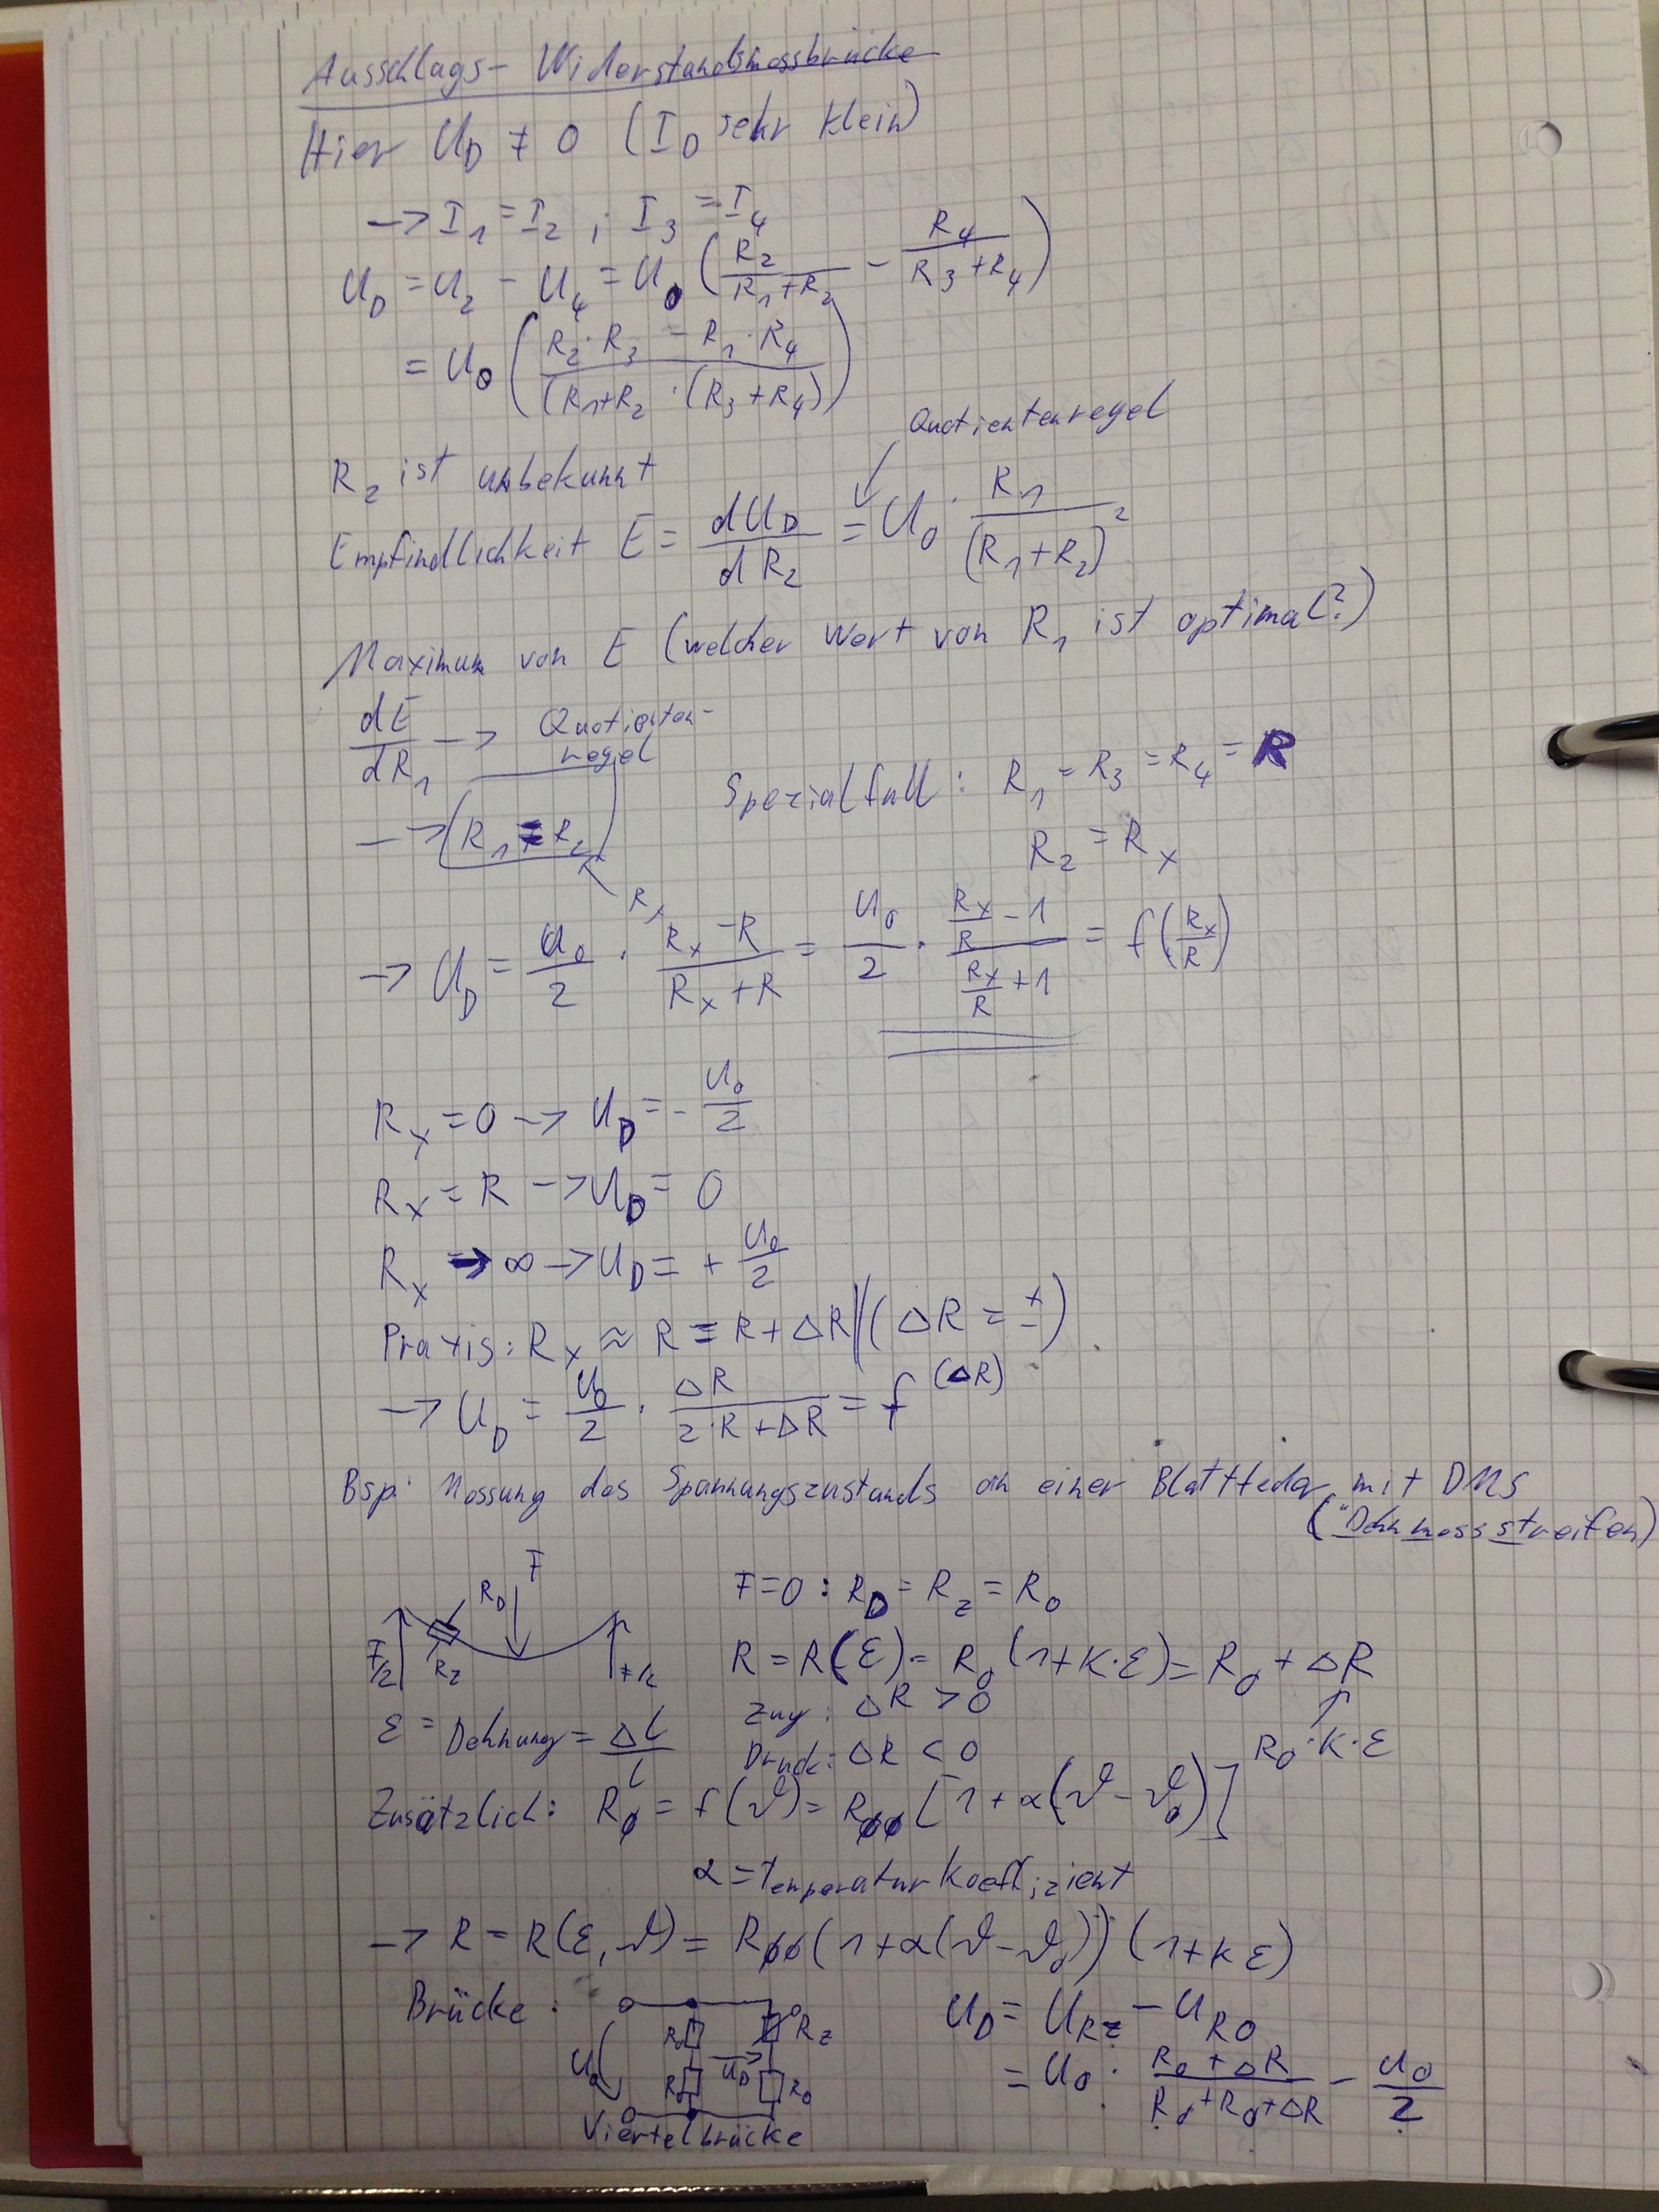 Ausschlags- Widerstandsmessbrücke
Hier U_D ≠ 0 (I_D sehr klein)
→ I_1 = I_2 ; I_3 = I_4
U_D = U_2 - U_4 = U_0 (R_2/(R_1+R_2) - R_4/(R_3+R_4))
= U_0 ((R_2·R_3 - R_1·R_4)/((R_1+R_2·(R_3+R_4)))
Quotientenregel
R_2 ist unbekannt
Empfindlichkeit E = dU_D/dR_2 = U_0 · R_1/(R_1+R_2)²
Maximum von E (welcher Wert von R_1 ist optimal?)
dE/dR_1 → Quotienten-
regel
Spezialfall: R_1 = R_3 = R_4 = R
→ R_1 = R_2
R_2 = R_x
R_x
→ U_D = U_0/2 · (R_x - R)/(R_x + R) = U_0/2 · (R_x/R - 1)/(R_x/R + 1) = f(R_x/R)
R_x = 0 → U_D = - U_0/2
R_x = R → U_D = 0
R_x → ∞ → U_D = + U_0/2
Praxis: R_x ≈ R = R + ΔR (ΔR = ±)
→ U_D = U_0/2 · ΔR/(2·R+ΔR) = f(ΔR)
Bsp: Messung des Spannungszustands an einer Blattfeder mit DMS
("Dehnmessstreifen)
F
R_D
F=0 : R_D = R_z = R_0
F/2
R_z
F/2
R = R(ε) = R_0 (1+K·ε) = R_0 + ΔR
Zug: ΔR > 0
ε = Dehnung = Δl/l
Druck: ΔR < 0
R_0·K·ε
Zusätzlich: R_0 = f(ϑ) = R_00 [1+α(ϑ-ϑ_0)]
α = Temperaturkoeffizient
→ R = R(ε,ϑ) = R_00 (1+α(ϑ-ϑ_0)) (1+Kε)
Brücke:
R_0
R_z
U_0
U_D
R_0
R_0
Viertelbrücke
U_D = U_Rz - U_R0
= U_0 · (R_0 + ΔR)/(R_0+R_0+ΔR) - U_0/2